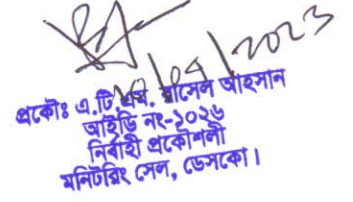 ২০/০৭/2023
প্রকৌঃ এ.টি.এম. রাসেল আহসান
আইডি নং-১০২৬
নির্বাহী প্রকৌশলী
মনিটরিং সেল, ডেসকো।